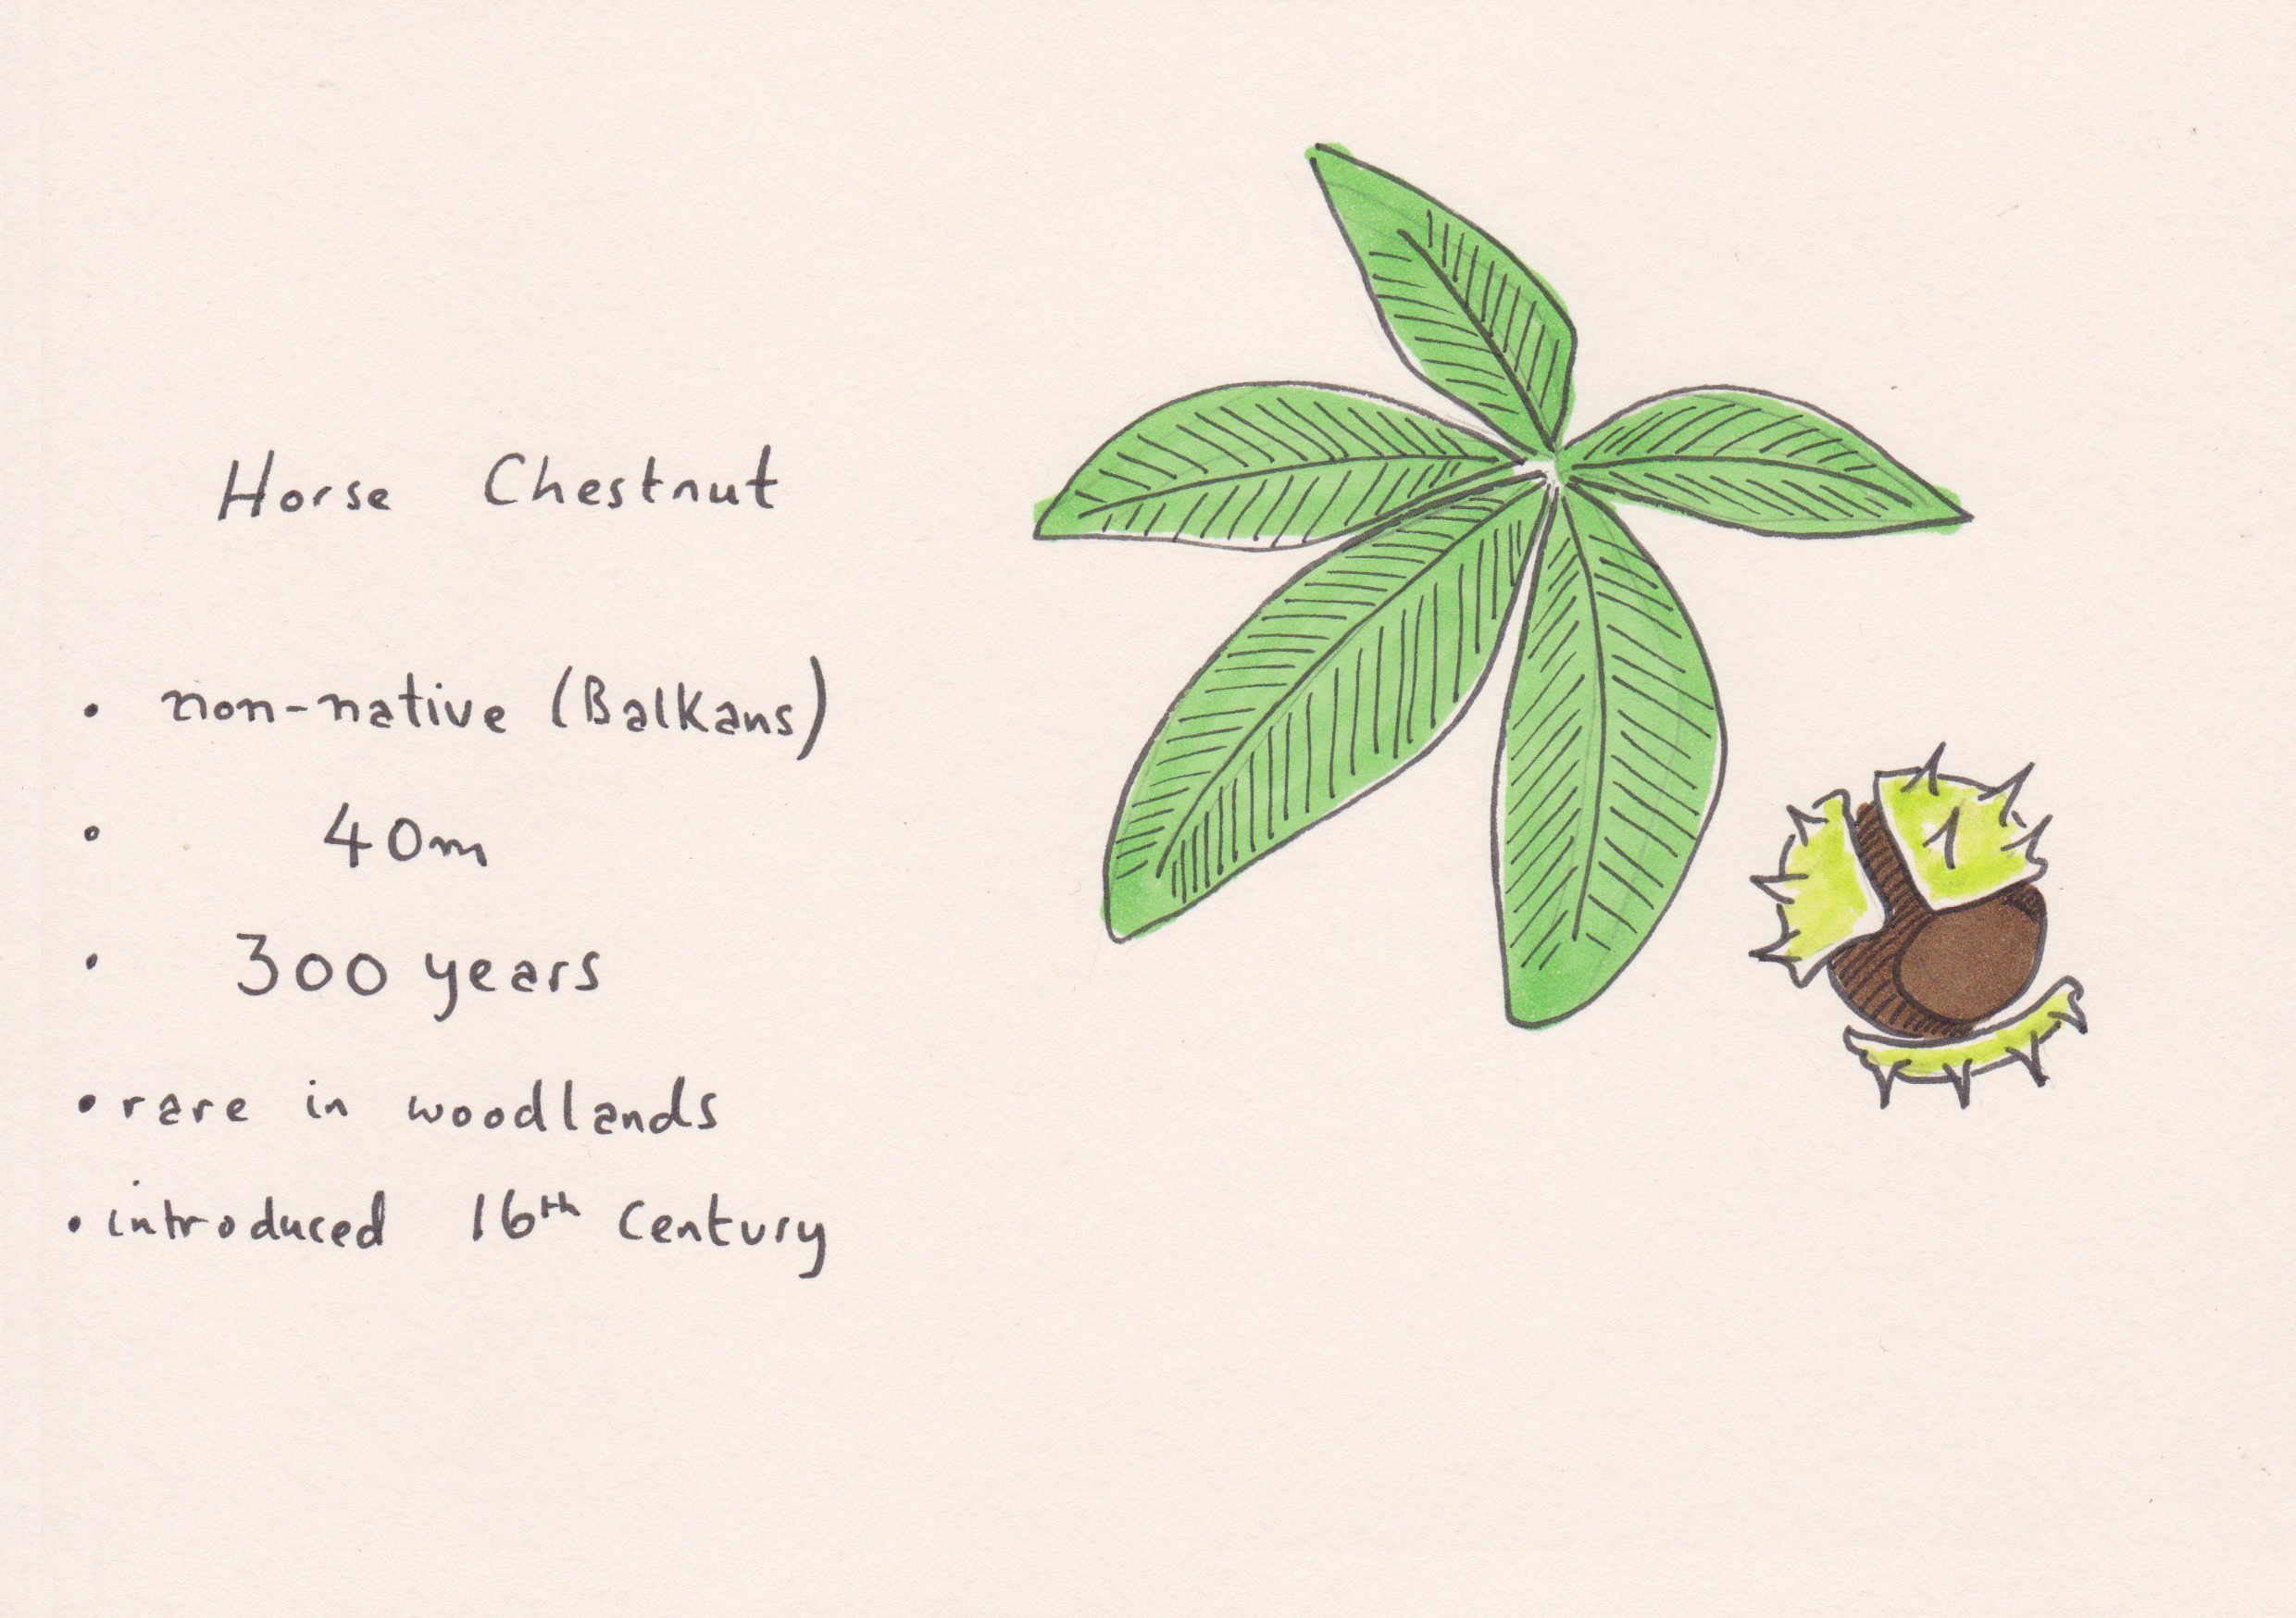 Horse Chestnut
• non-native (Balkans)
• 40m
• 300 years
• rare in woodlands
• introduced 16th Century